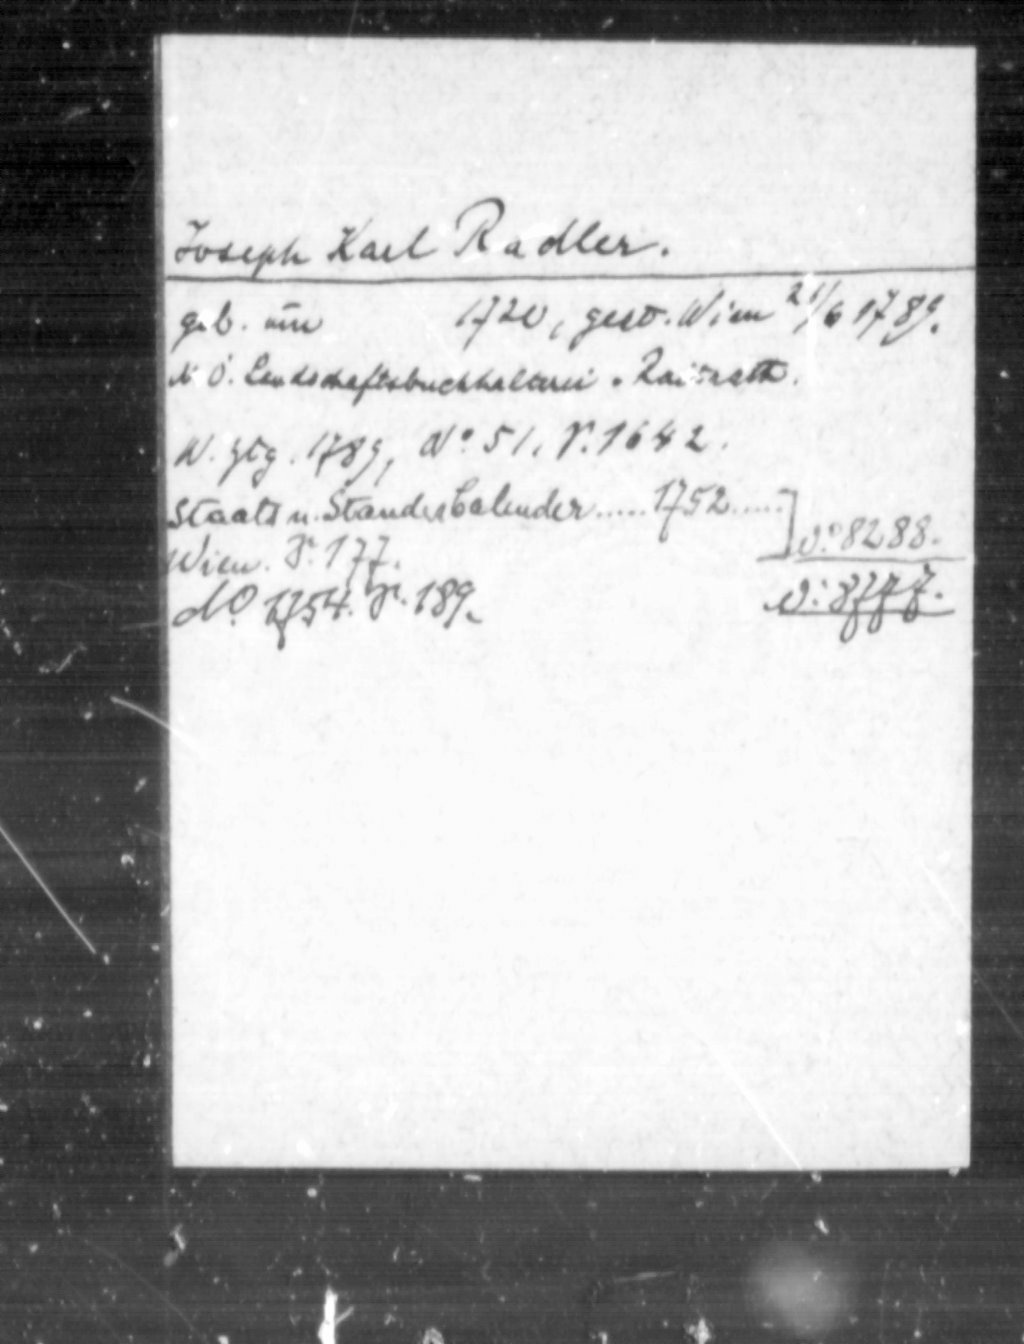 Joseph Karl Radler.
geb. um 1720, gest. Wien 21/6 1789.
N. Ö. Landschaftsbuchhalterei . Raitrath.
W. Ztg. 1789, No. 51. P. 1642.
Staats u. Standes Calender ..... 1752 .....
Wien. P. 177. V: 8288.
do 1754. P. 189. V: 8777.